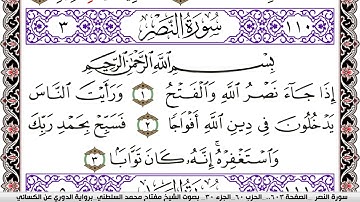 ٣ سُورَةُ النَّصْرِ ١١٠
بِسْمِ اللَّهِ الرَّحْمَٰنِ الرَّحِيمِ
إِذَا جَاءَ نَصْرُ اللَّهِ وَالْفَتْحُ ١ وَرَأَيْتَ النَّاسَ
يَدْخُلُونَ فِي دِينِ اللَّهِ أَفْوَاجًا ٢ فَسَبِّحْ بِحَمْدِ رَبِّكَ
وَاسْتَغْفِرْهُ إِنَّهُ كَانَ تَوَّابًا ٣
سورة النصر الصفحة ٦٠٣... الحزب ٦٠ الجزء ٣٠ بصوت الشيخ مفتاح محمد السلطني برواية الدوري عن الكسائي